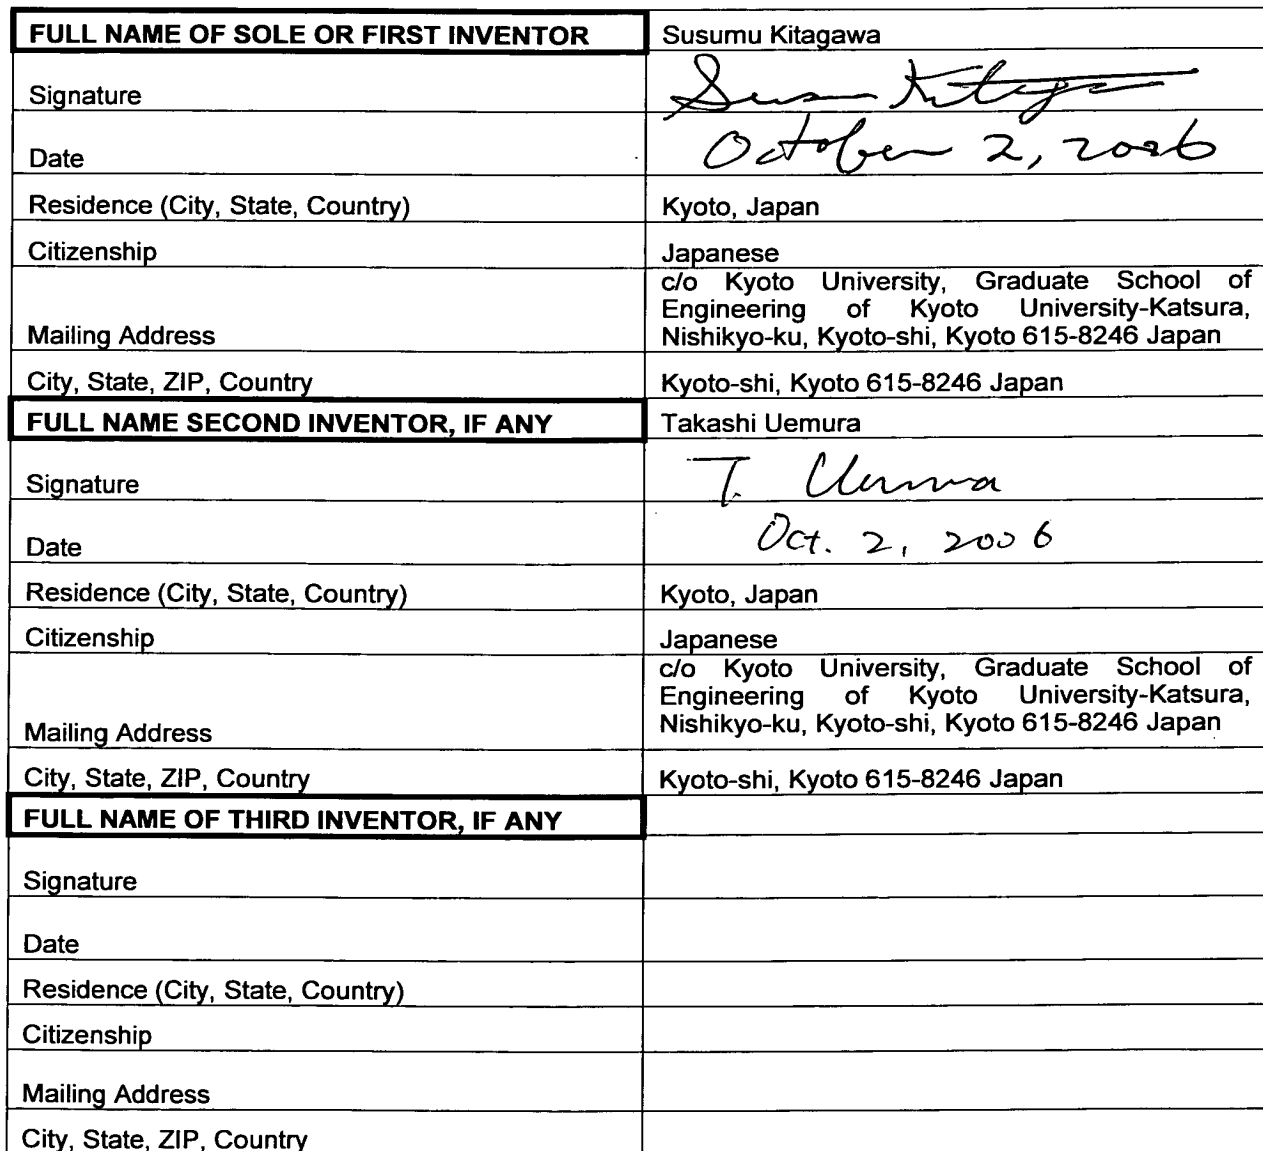 FULL NAME OF SOLE OR FIRST INVENTOR Susumu Kitagawa
Signature Susumu Kitagawa
Date October 2, 2006
Residence (City, State, Country) Kyoto, Japan
Citizenship Japanese
c/o Kyoto University, Graduate School of
Engineering of Kyoto University-Katsura,
Mailing Address Nishikyo-ku, Kyoto-shi, Kyoto 615-8246 Japan
City, State, ZIP, Country Kyoto-shi, Kyoto 615-8246 Japan
FULL NAME SECOND INVENTOR, IF ANY Takashi Uemura
Signature T. Uemura
Date Oct. 2, 2006
Residence (City, State, Country) Kyoto, Japan
Citizenship Japanese
c/o Kyoto University, Graduate School of
Engineering of Kyoto University-Katsura,
Mailing Address Nishikyo-ku, Kyoto-shi, Kyoto 615-8246 Japan
City, State, ZIP, Country Kyoto-shi, Kyoto 615-8246 Japan
FULL NAME OF THIRD INVENTOR, IF ANY
Signature
Date
Residence (City, State, Country)
Citizenship
Mailing Address
City, State, ZIP, Country